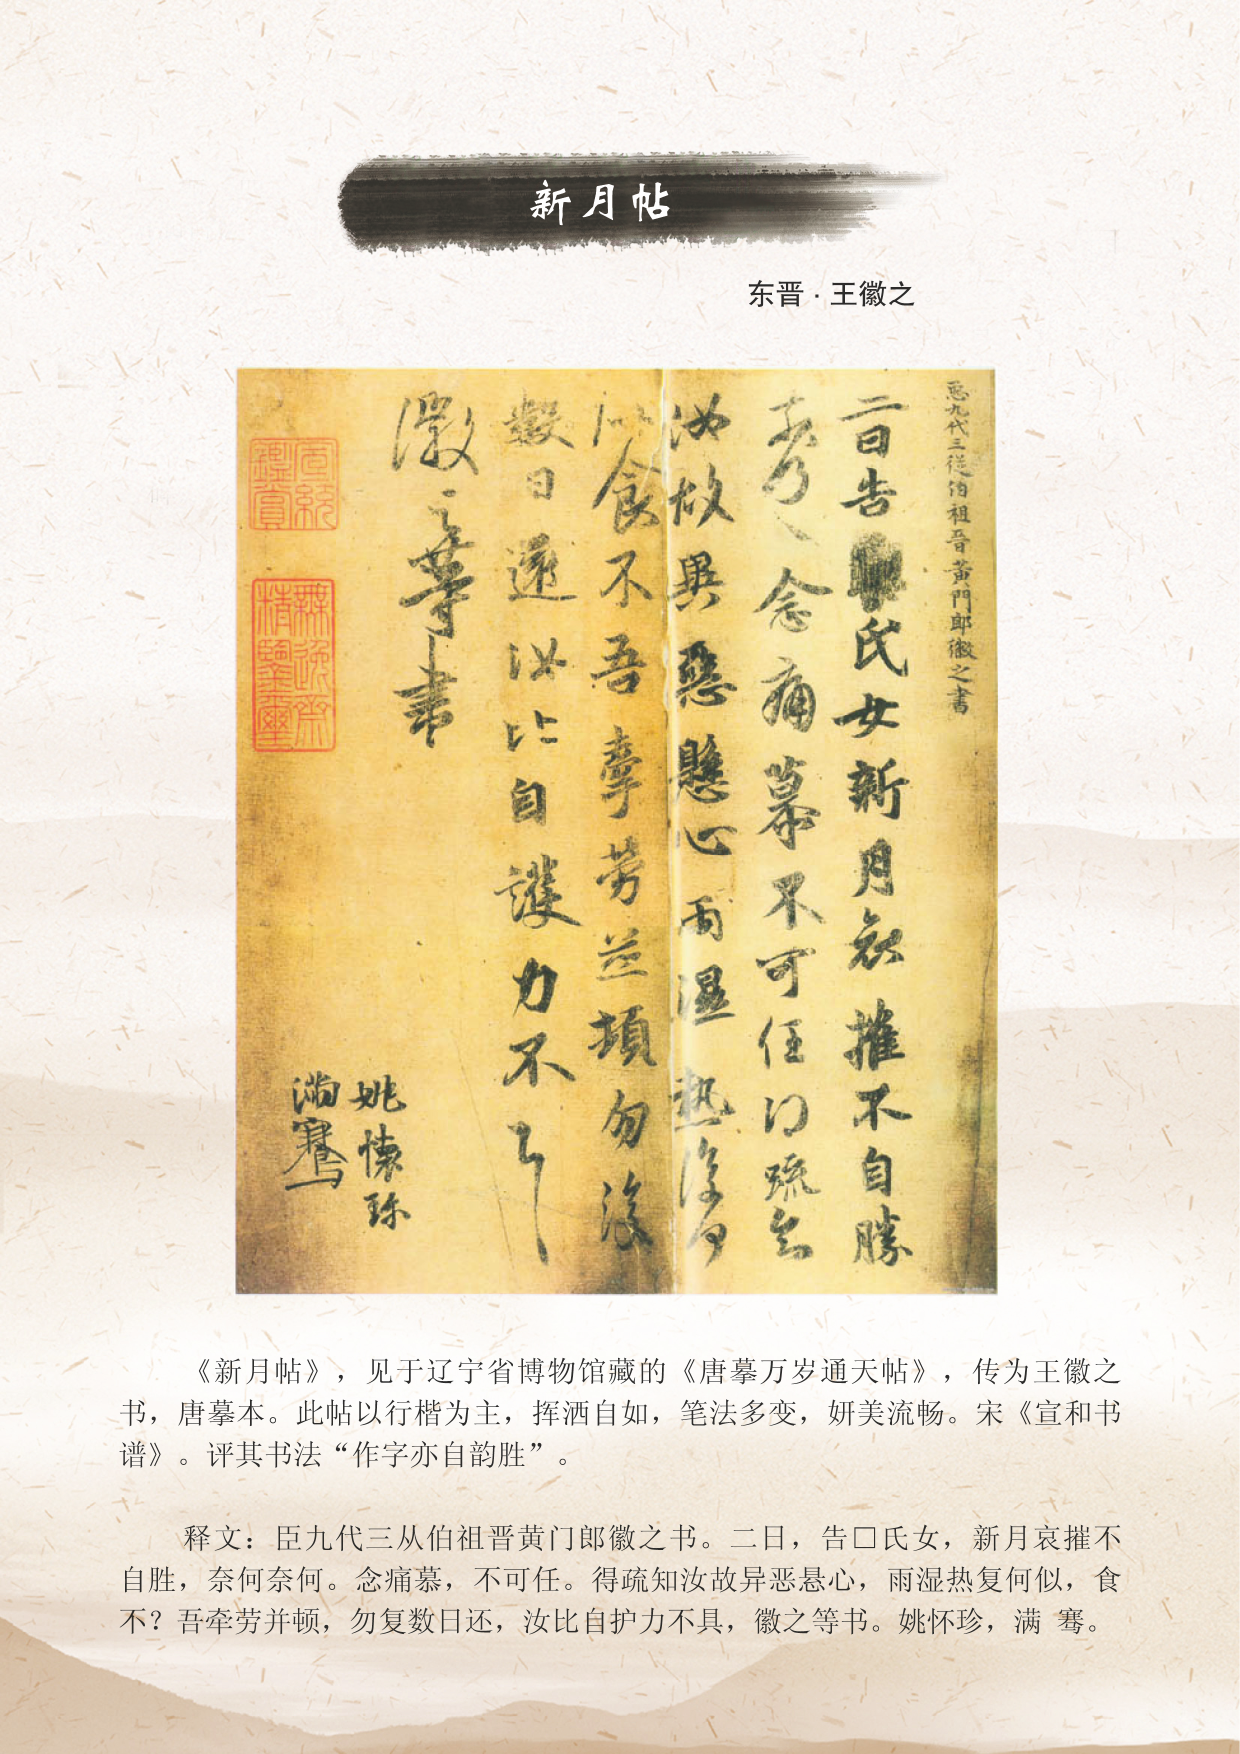 新月帖
东晋·王徽之
臣九代三從伯祖晉黃門郎徽之書
二日告氏女新月哀摧不自勝
奈何奈何念痛慕不可任得疏知
汝故異惡懸心雨濕熱復何
似食不吾牽勞並頓勿復
數日還汝比自護力不具
徽之等書
姚懷珎
滿騫
宣統鑑賞
無逸齋精鑒璽
《新月帖》，见于辽宁省博物馆藏的《唐摹万岁通天帖》，传为王徽之
书，唐摹本。此帖以行楷为主，挥洒自如，笔法多变，妍美流畅。宋《宣和书
谱》。评其书法“作字亦自韵胜”。
释文：臣九代三从伯祖晋黄门郎徽之书。二日，告□氏女，新月哀摧不
自胜，奈何奈何。念痛慕，不可任。得疏知汝故异恶悬心，雨湿热复何似，食
不？吾牵劳并顿，勿复数日还，汝比自护力不具，徽之等书。姚怀珍，满 骞。